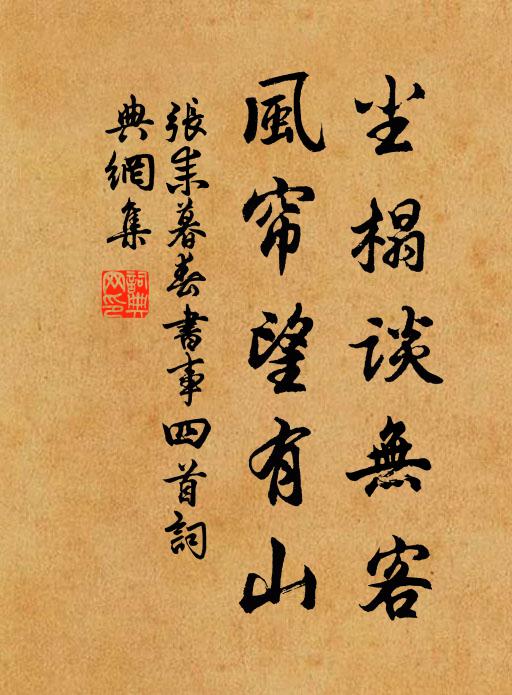 尘榻談無客
風帘望有山
張耒暮春書事四首詞
典網集
詞典
网印